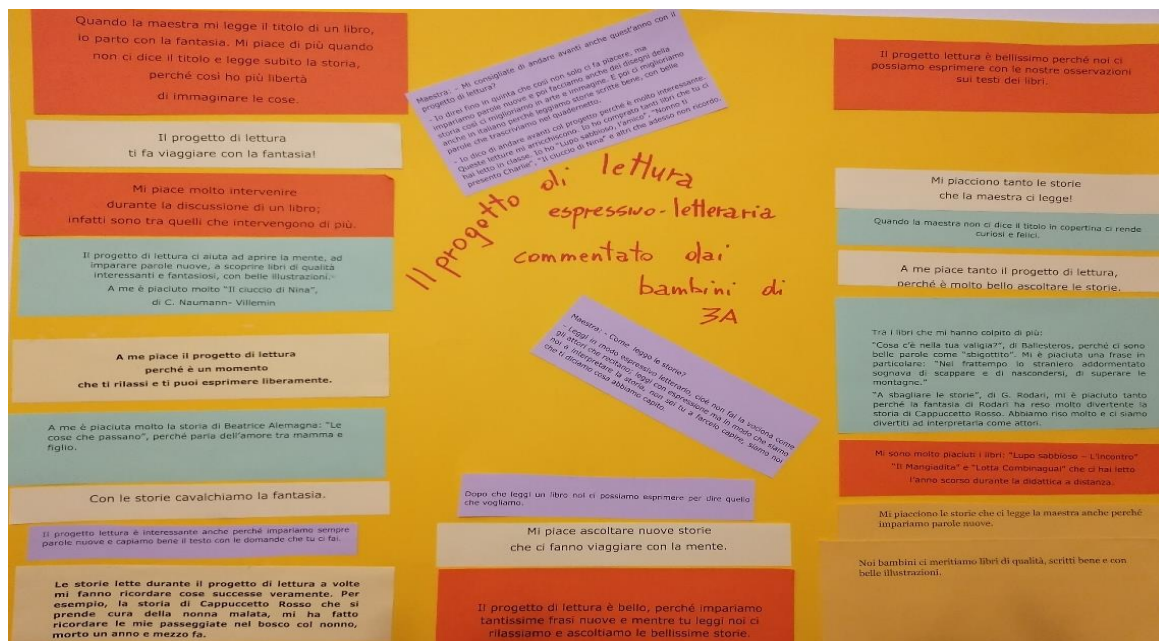 Quando la maestra mi legge il titolo di un libro,
io parto con la fantasia. Mi piace di più quando
non ci dice il titolo e legge subito la storia,
perché così ho più libertà
di immaginare le cose.
Il progetto di lettura
ti fa viaggiare con la fantasia!
Mi piace molto intervenire
durante la discussione di un libro;
infatti sono tra quelli che intervengono di più.
Il progetto di lettura ci aiuta ad aprire la mente, ad
imparare parole nuove, a scoprire libri di qualità
interessanti e fantasiosi, con belle illustrazioni.
A me è piaciuto molto "Il ciuccio di Nina",
di C. Naumann- Villemin
A me piace il progetto di lettura
perché è un momento
che ti rilassi e ti puoi esprimere liberamente.
A me è piaciuta molto la storia di Beatrice Alemagna: "Le
cose che passano", perché parla dell'amore tra mamma e
figlio.
Con le storie cavalchiamo la fantasia.
Il progetto lettura è interessante anche perché impariamo sempre
parole nuove e capiamo bene il testo con le domande che tu ci fai.
Le storie lette durante il progetto di lettura a volte
mi fanno ricordare cose successe veramente. Per
esempio, la storia di Cappuccetto Rosso che si
prende cura della nonna malata, mi ha fatto
ricordare le mie passeggiate nel bosco col nonno,
morto un anno e mezzo fa.
Maestra: - Mi consigliate di andare avanti anche quest'anno con il
progetto di lettura?
- Io direi fino in quinta che così non solo ci fa piacere, ma
impariamo parole nuove e poi facciamo anche dei disegni della
storia così ci miglioriamo in arte e immagine. E poi ci miglioriamo
anche in italiano perché leggiamo storie scritte bene, con belle
parole che trascriviamo nel quadernetto.
- Io dico di andare avanti col progetto perché è molto interessante.
Queste letture mi arricchiscono. Io ho comprato tanti libri che tu ci
hai letto in classe. Io ho "Lupo sabbioso, l'amico", "Nonno ti
presento Charlie", "Il ciuccio di Nina" e altri che adesso non ricordo.
Il progetto di lettura
espressivo-letteraria
commentato dai
bambini di
3A
Maestra: - Come leggo le storie?
- Leggi in modo espressivo letterario, cioè non fai la vociona come
gli attori che recitano; leggi con espressione ma in modo che siamo
noi a interpretare la storia, non sei tu a farcelo capire, siamo noi
che ti diciamo cosa abbiamo capito.
Dopo che leggi un libro noi ci possiamo esprimere per dire quello
che vogliamo.
Mi piace ascoltare nuove storie
che ci fanno viaggiare con la mente.
Il progetto di lettura è bello, perché impariamo
tantissime frasi nuove e mentre tu leggi noi ci
rilassiamo e ascoltiamo le bellissime storie.
Il progetto lettura è bellissimo perché noi ci
possiamo esprimere con le nostre osservazioni
sui testi dei libri.
Mi piacciono tanto le storie
che la maestra ci legge!
Quando la maestra non ci dice il titolo in copertina ci rende
curiosi e felici.
A me piace tanto il progetto di lettura,
perché è molto bello ascoltare le storie.
Tra i libri che mi hanno colpito di più:
"Cosa c'è nella tua valigia?", di Ballesteros, perché ci sono
belle parole come "sbigottito". Mi è piaciuta una frase in
particolare: "Nel frattempo lo straniero addormentato
sognava di scappare e di nascondersi, di superare le
montagne."
"A sbagliare le storie", di G. Rodari, mi è piaciuto tanto
perché la fantasia di Rodari ha reso molto divertente la
storia di Cappuccetto Rosso. Abbiamo riso molto e ci siamo
divertiti ad interpretarla come attori.
Mi sono molto piaciuti i libri: "Lupo sabbioso – L'incontro"
"Il Mangiadita" e "Lotta Combinaguai" che ci hai letto
l'anno scorso durante la didattica a distanza.
Mi piacciono le storie che ci legge la maestra anche perché
impariamo parole nuove.
Noi bambini ci meritiamo libri di qualità, scritti bene e con
belle illustrazioni.